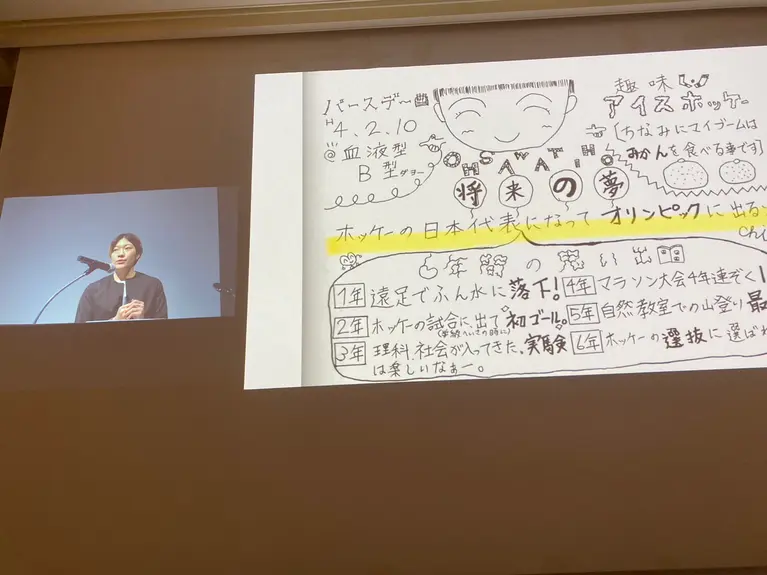 バースデー
H4.2.10
血液型
B型ダヨー
趣味
アイスホッケー
[ちなみにマイブームは
みかんを食べる事です]
OHSAWA
将来の夢
ホッケーの日本代表になって オリンピックに出るゾ
chi
6年間の思い出
1年 遠足でふん水に落下!
2年 ホッケーの試合に出て初ゴール。
3年 理科、社会が入ってきた、実験
は楽しいなぁー。
4年 マラソン大会4年連ぞく1
5年 自然教室での山登り最
6年 ホッケーの選抜に選ばれ